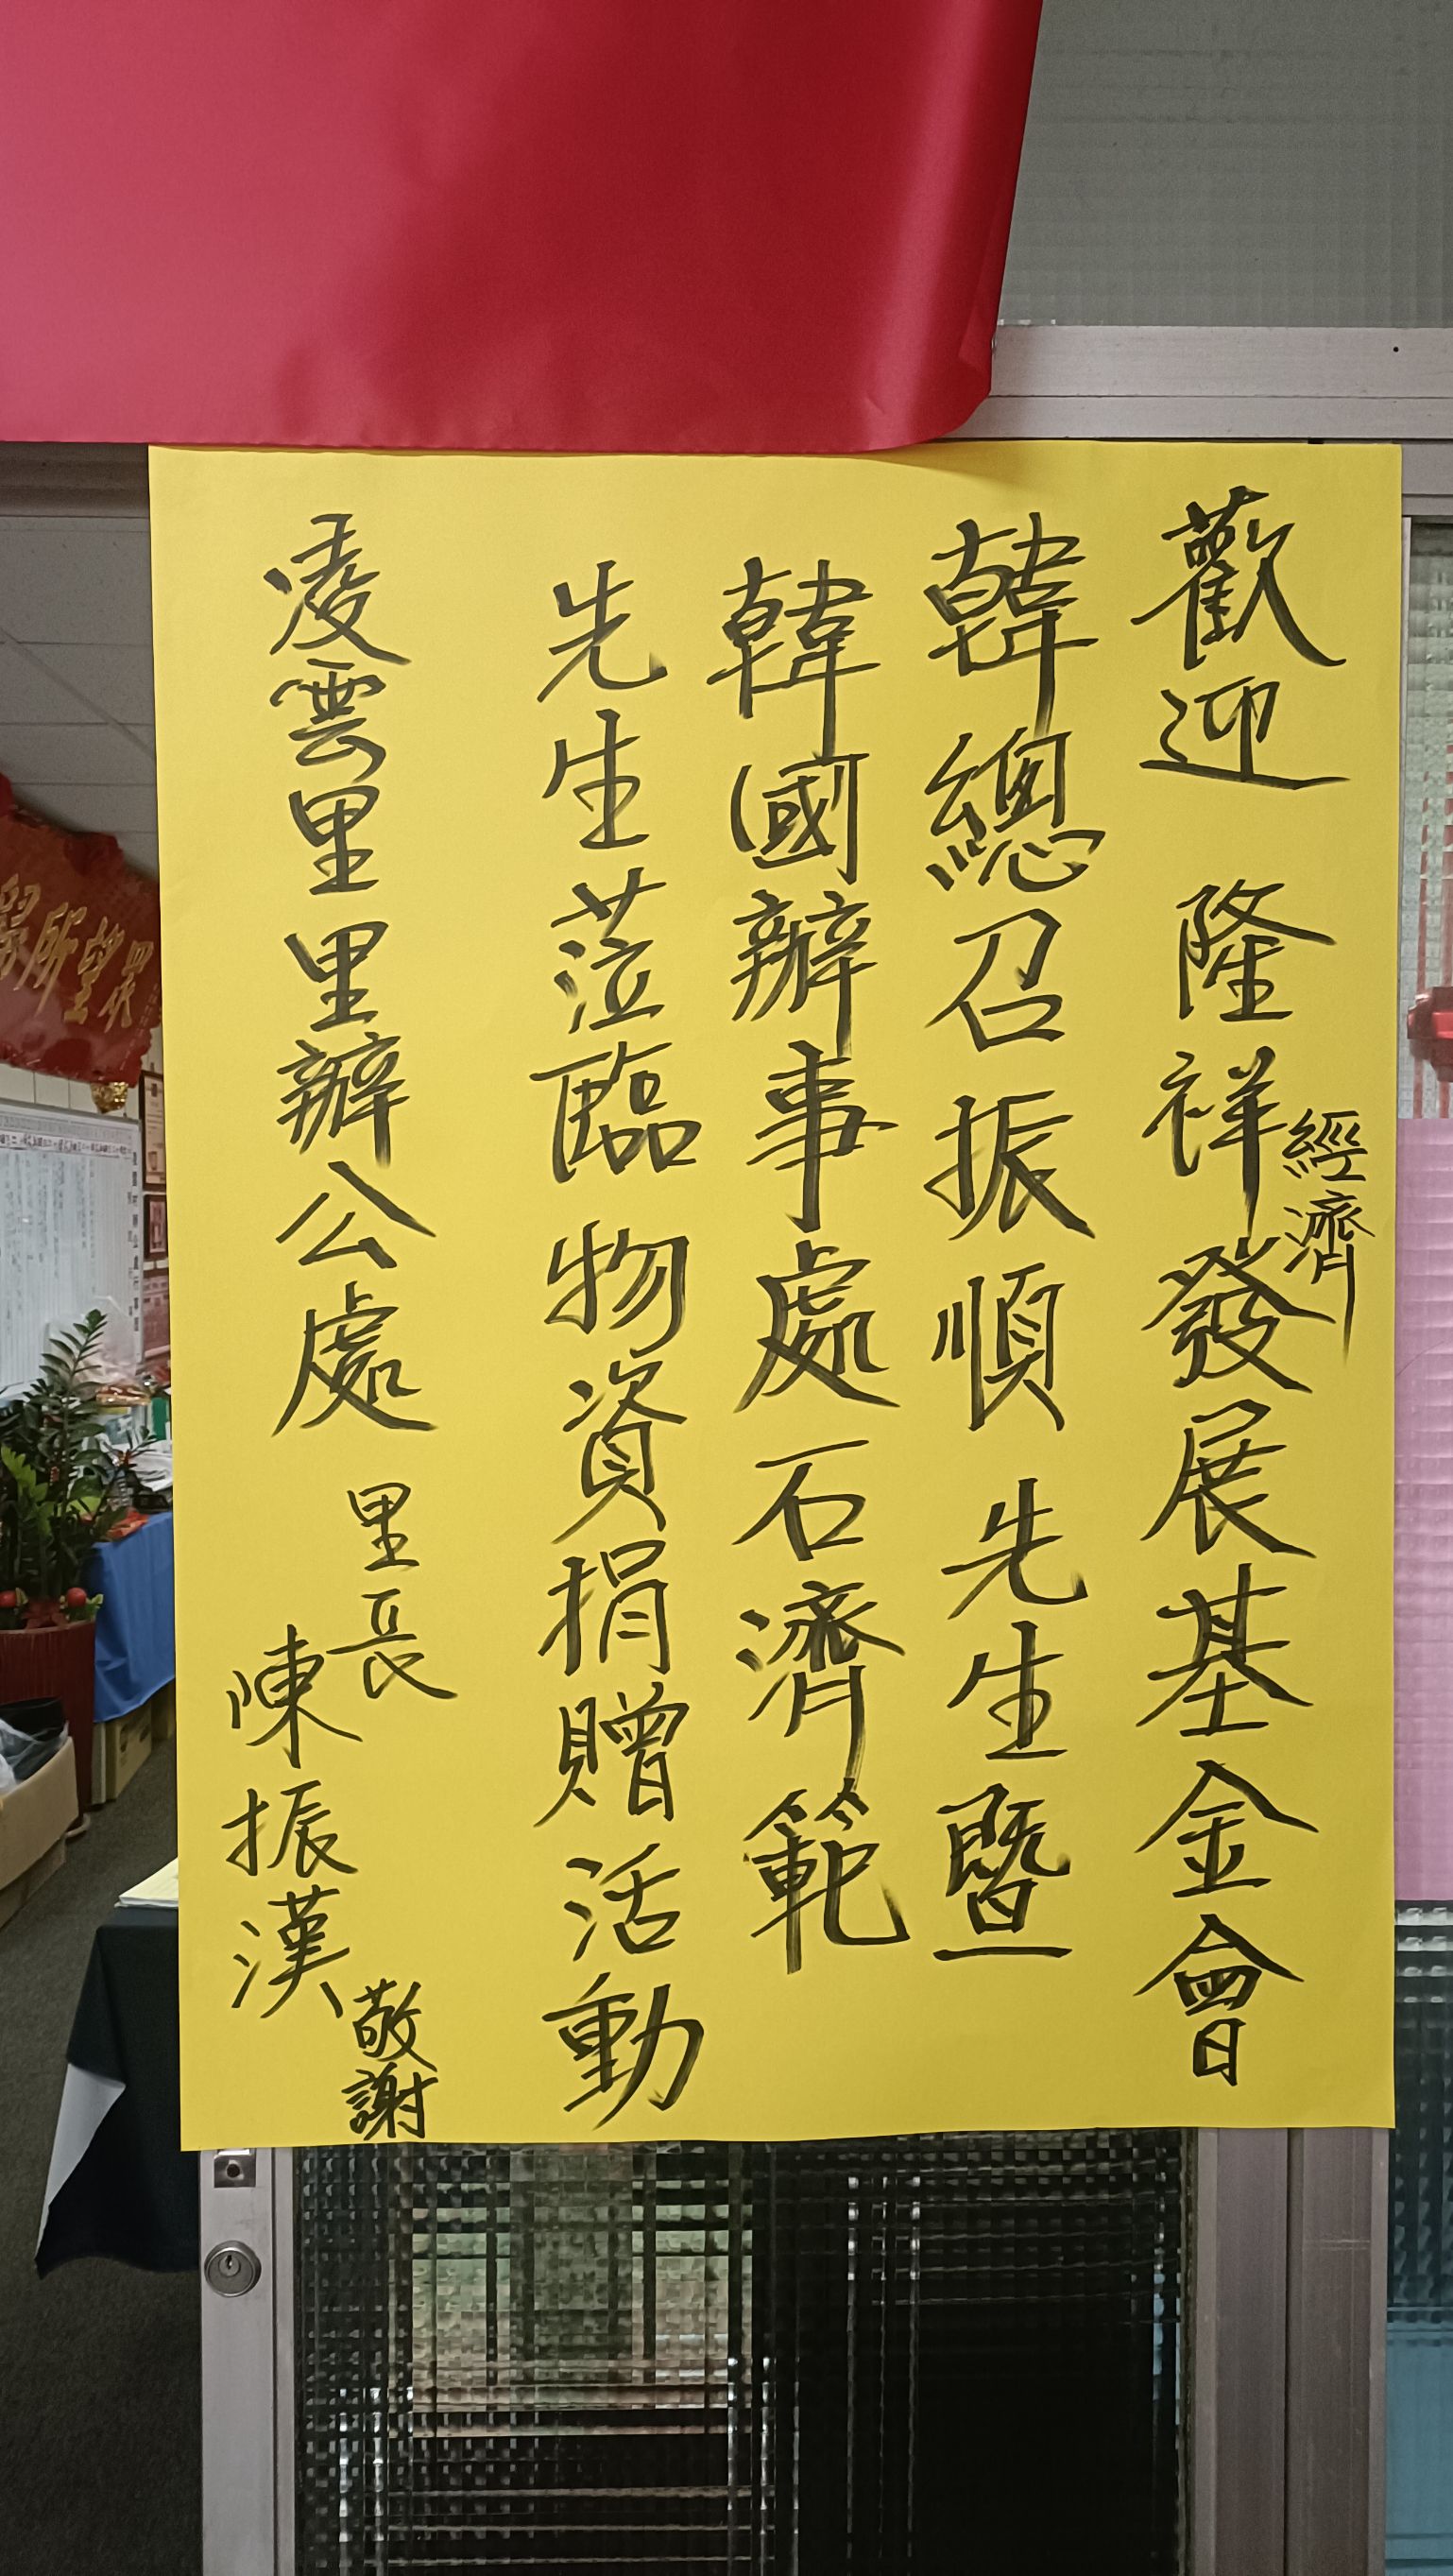 歡迎 隆祥經濟發展基金會
韓總召振順 先生暨
韓國辦事處石濟範
先生蒞臨 物資捐贈活動
凌雲里里辦公處 里長 陳振漢 敬謝
眾望所